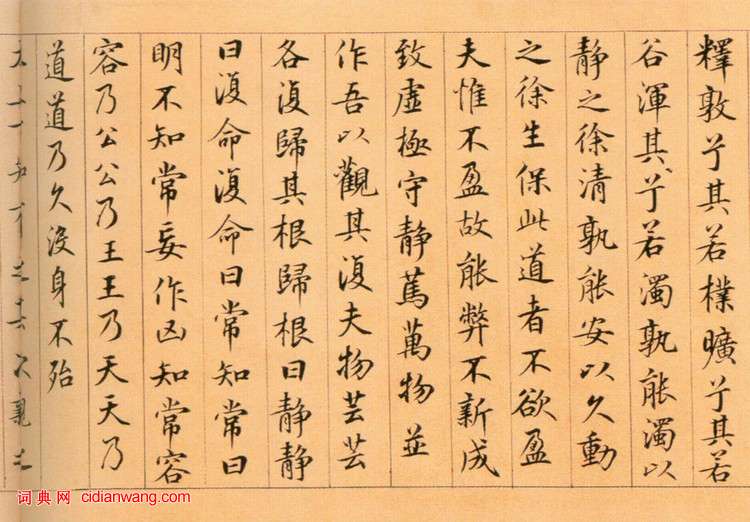 釋敦兮其若樸曠兮其若
谷渾其兮若濁孰能濁以
静之徐清孰能安以久動
之徐生保此道者不欲盈
夫惟不盈故能弊不新成
致虛極守静篤萬物並
作吾以觀其復夫物芸芸
各復歸其根歸根曰静静
曰復命復命曰常知常曰
明不知常妄作凶知常容
容乃公公乃王王乃天天乃
道道乃久没身不殆
词典网 cidianwang.com